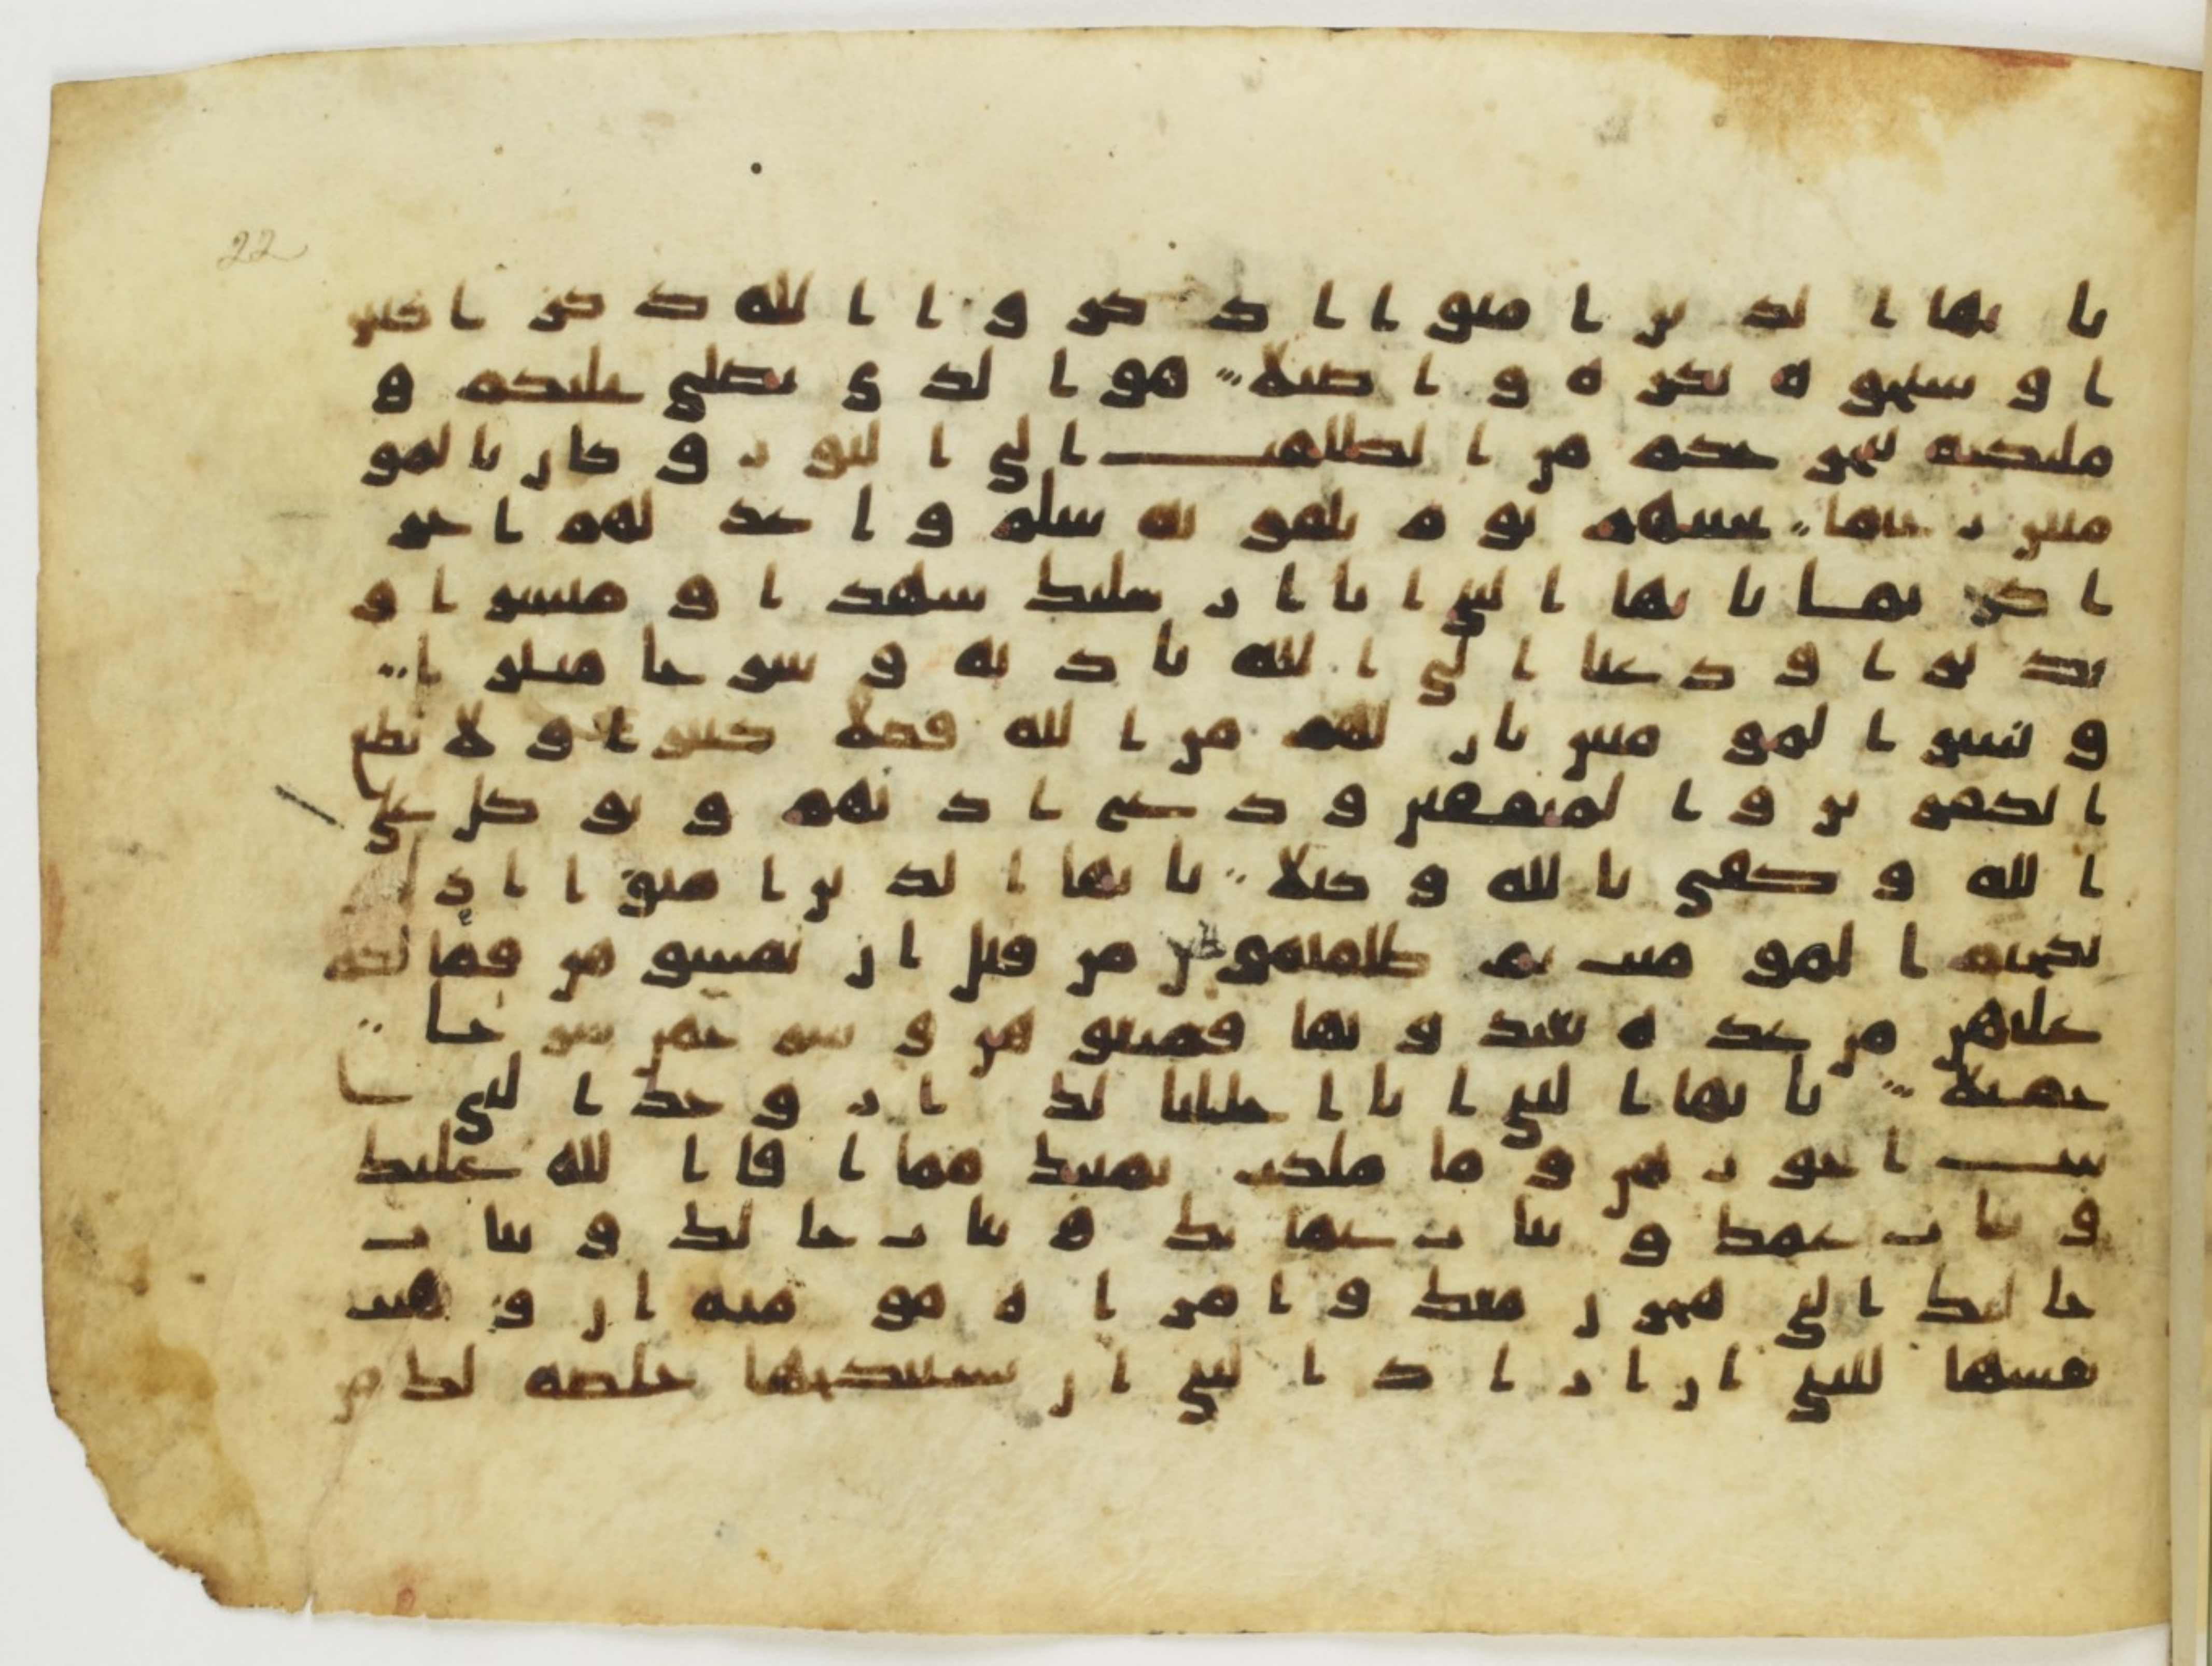 22
يا يها الذين امنوا اذكروا الله ذكرا كثير
ا وسبحوه بكره واصيلا هو الذي يصلي عليكم و
ملئكته ليخرجكم من الظلمت الي النور وكان بالمو
منين رحيما تحيتهم يوم يلقونه سلم واعد لهم اجر
ا كريما يا يها النبي انا ارسلنك شهدا ومبشرا و
نذيرا وداعيا الي الله باذنه وسرجا منيرا
وبشر المومنين بان لهم من الله فضلا كبيرا ولا تطع
الكفرين والمنفقين ودع اذيهم وتوكل علي
الله وكفي بالله وكيلا يا يها الذين امنوا اذا
نكحتم المومنت ثم طلقتموهن من قبل ان تمسوهن فما لكم
عليهن من عده تعتدونها فمتعوهن وسرحوهن سرحا
جميلا يا يها النبي انا احللنا لك ازوجك التي
ت اجورهن وما ملكت يمينك مما افا الله عليك
وبنات عمك وبنات عماتك وبنات خالك وبنات
خالتك التي هجرن معك وامراه مومنه ان وهبت
نفسها للنبي ان اراد النبي ان يستنكحها خلصه لك من